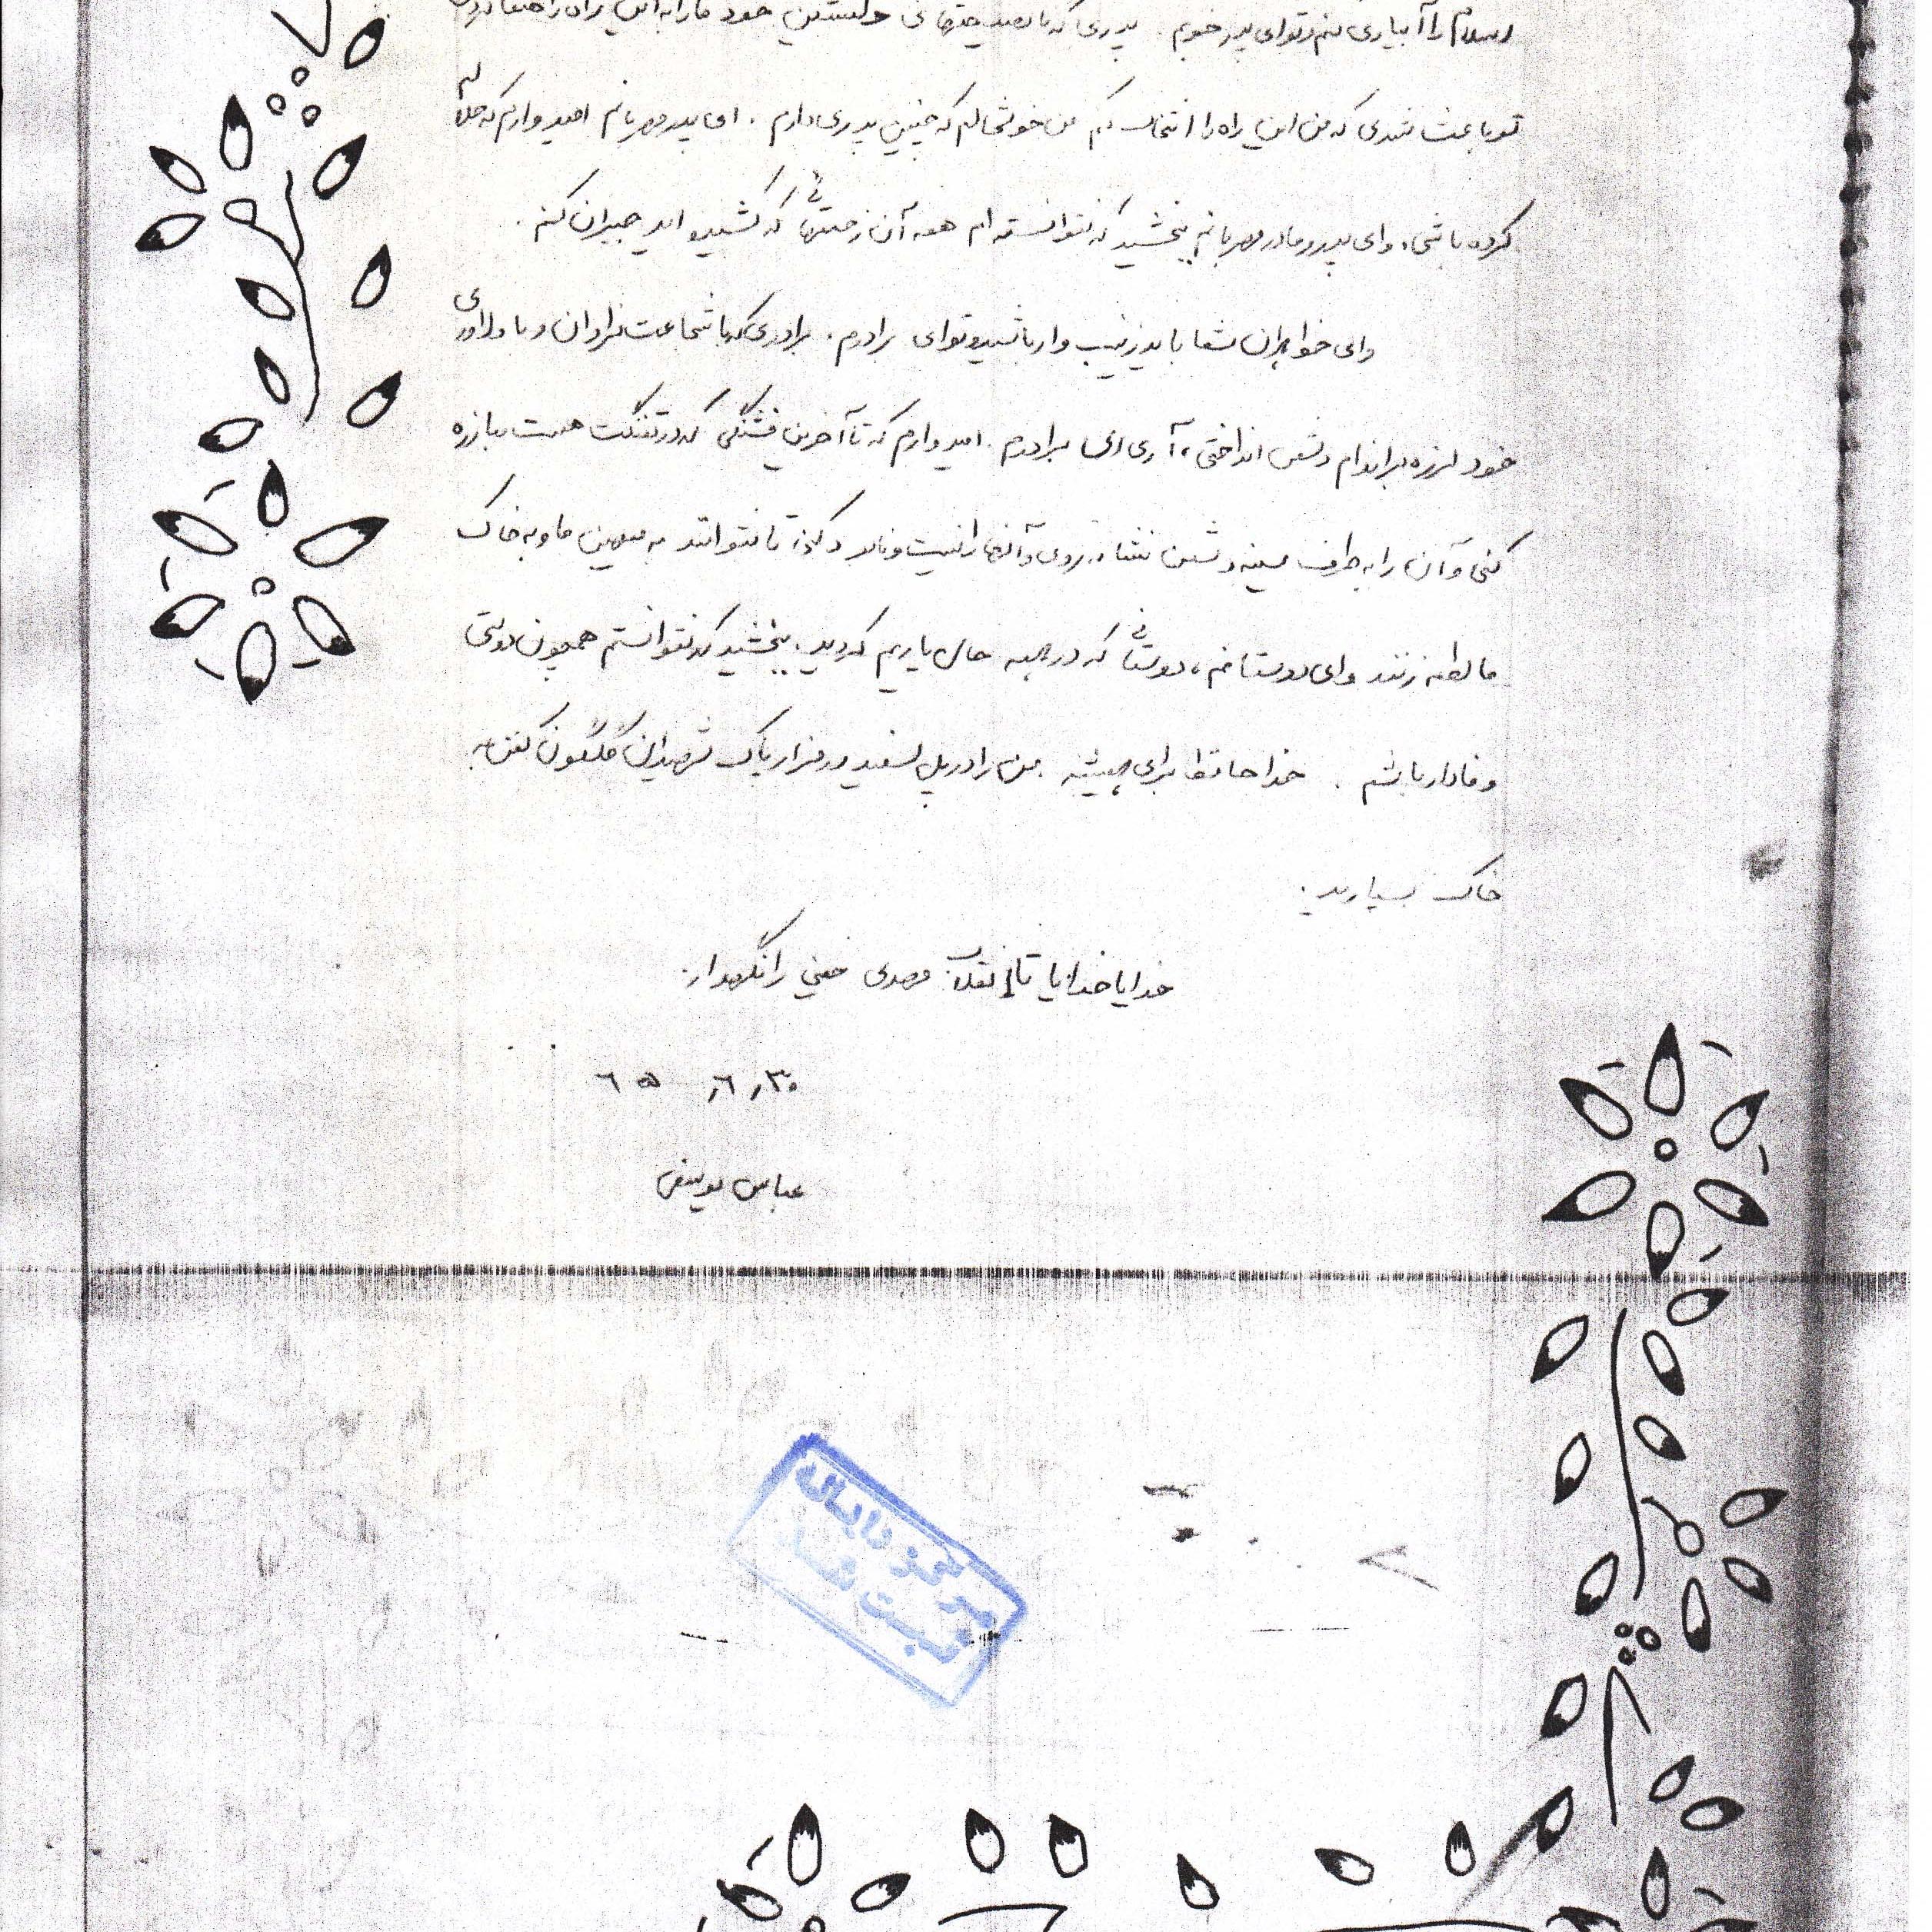 اسلام را آبیاری کنم و توای پدر خوبم. پدری که با نصیحتهای دلنشین خود ما را به این راه راهنما
تو باعث شدی که من این راه را انتخاب کنم من خوشحالم که چنین پدری دارم. ای پدر مهربانم امیدوارم که حلالم
کرده باشی، وای پدر و مادر مهربانم ببخشید که نتوانسته ام همه آن زحمتهائی که کشیده اید جبران کنم.
وای خواهران شما باید زینب وار باشید و توای برادرم. برادری که با شجاعت فراوان و با دلاوری
خود لرزه بر اندام دشمن انداختی، آری ای برادرم. امیدوارم که تا آخرین فشنگی که در تفنگت هست مبارزه
کنی و آن را به طرف سینه دشمن نشانه روی و آنها را نیست و نابود کنی تا نتوانند به میهن ما و به خاک
ما لطمه زنند وای دوستانم، دوستانی که در همه حال یاریم کردید. ببخشید که نتوانستم همچون دوستی
وفادار باشم. خدا حافظ برای همیشه. من را در پل سفید در مزار پاک شهیدان گلگون کفن به
خاک بسپارید.
خدایا خدایا تا انقلاب مهدی خمینی را نگهدار.
۳۰ر۶ر ۶۵
عباس یوسفی
مرکز رایانه
ثبت شد